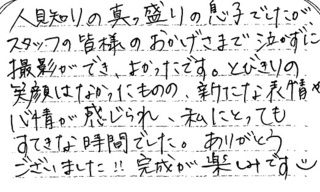 人見知りの真っ盛りの息子でしたが
スタッフの皆様のおかげさまで泣かずに
撮影ができ、よかったです。とびきりの
笑顔はなかったものの、新たな表情や
心情が感じられ、私にとっても
すてきな時間でした。ありがとう
ございました!! 完成が楽しみです